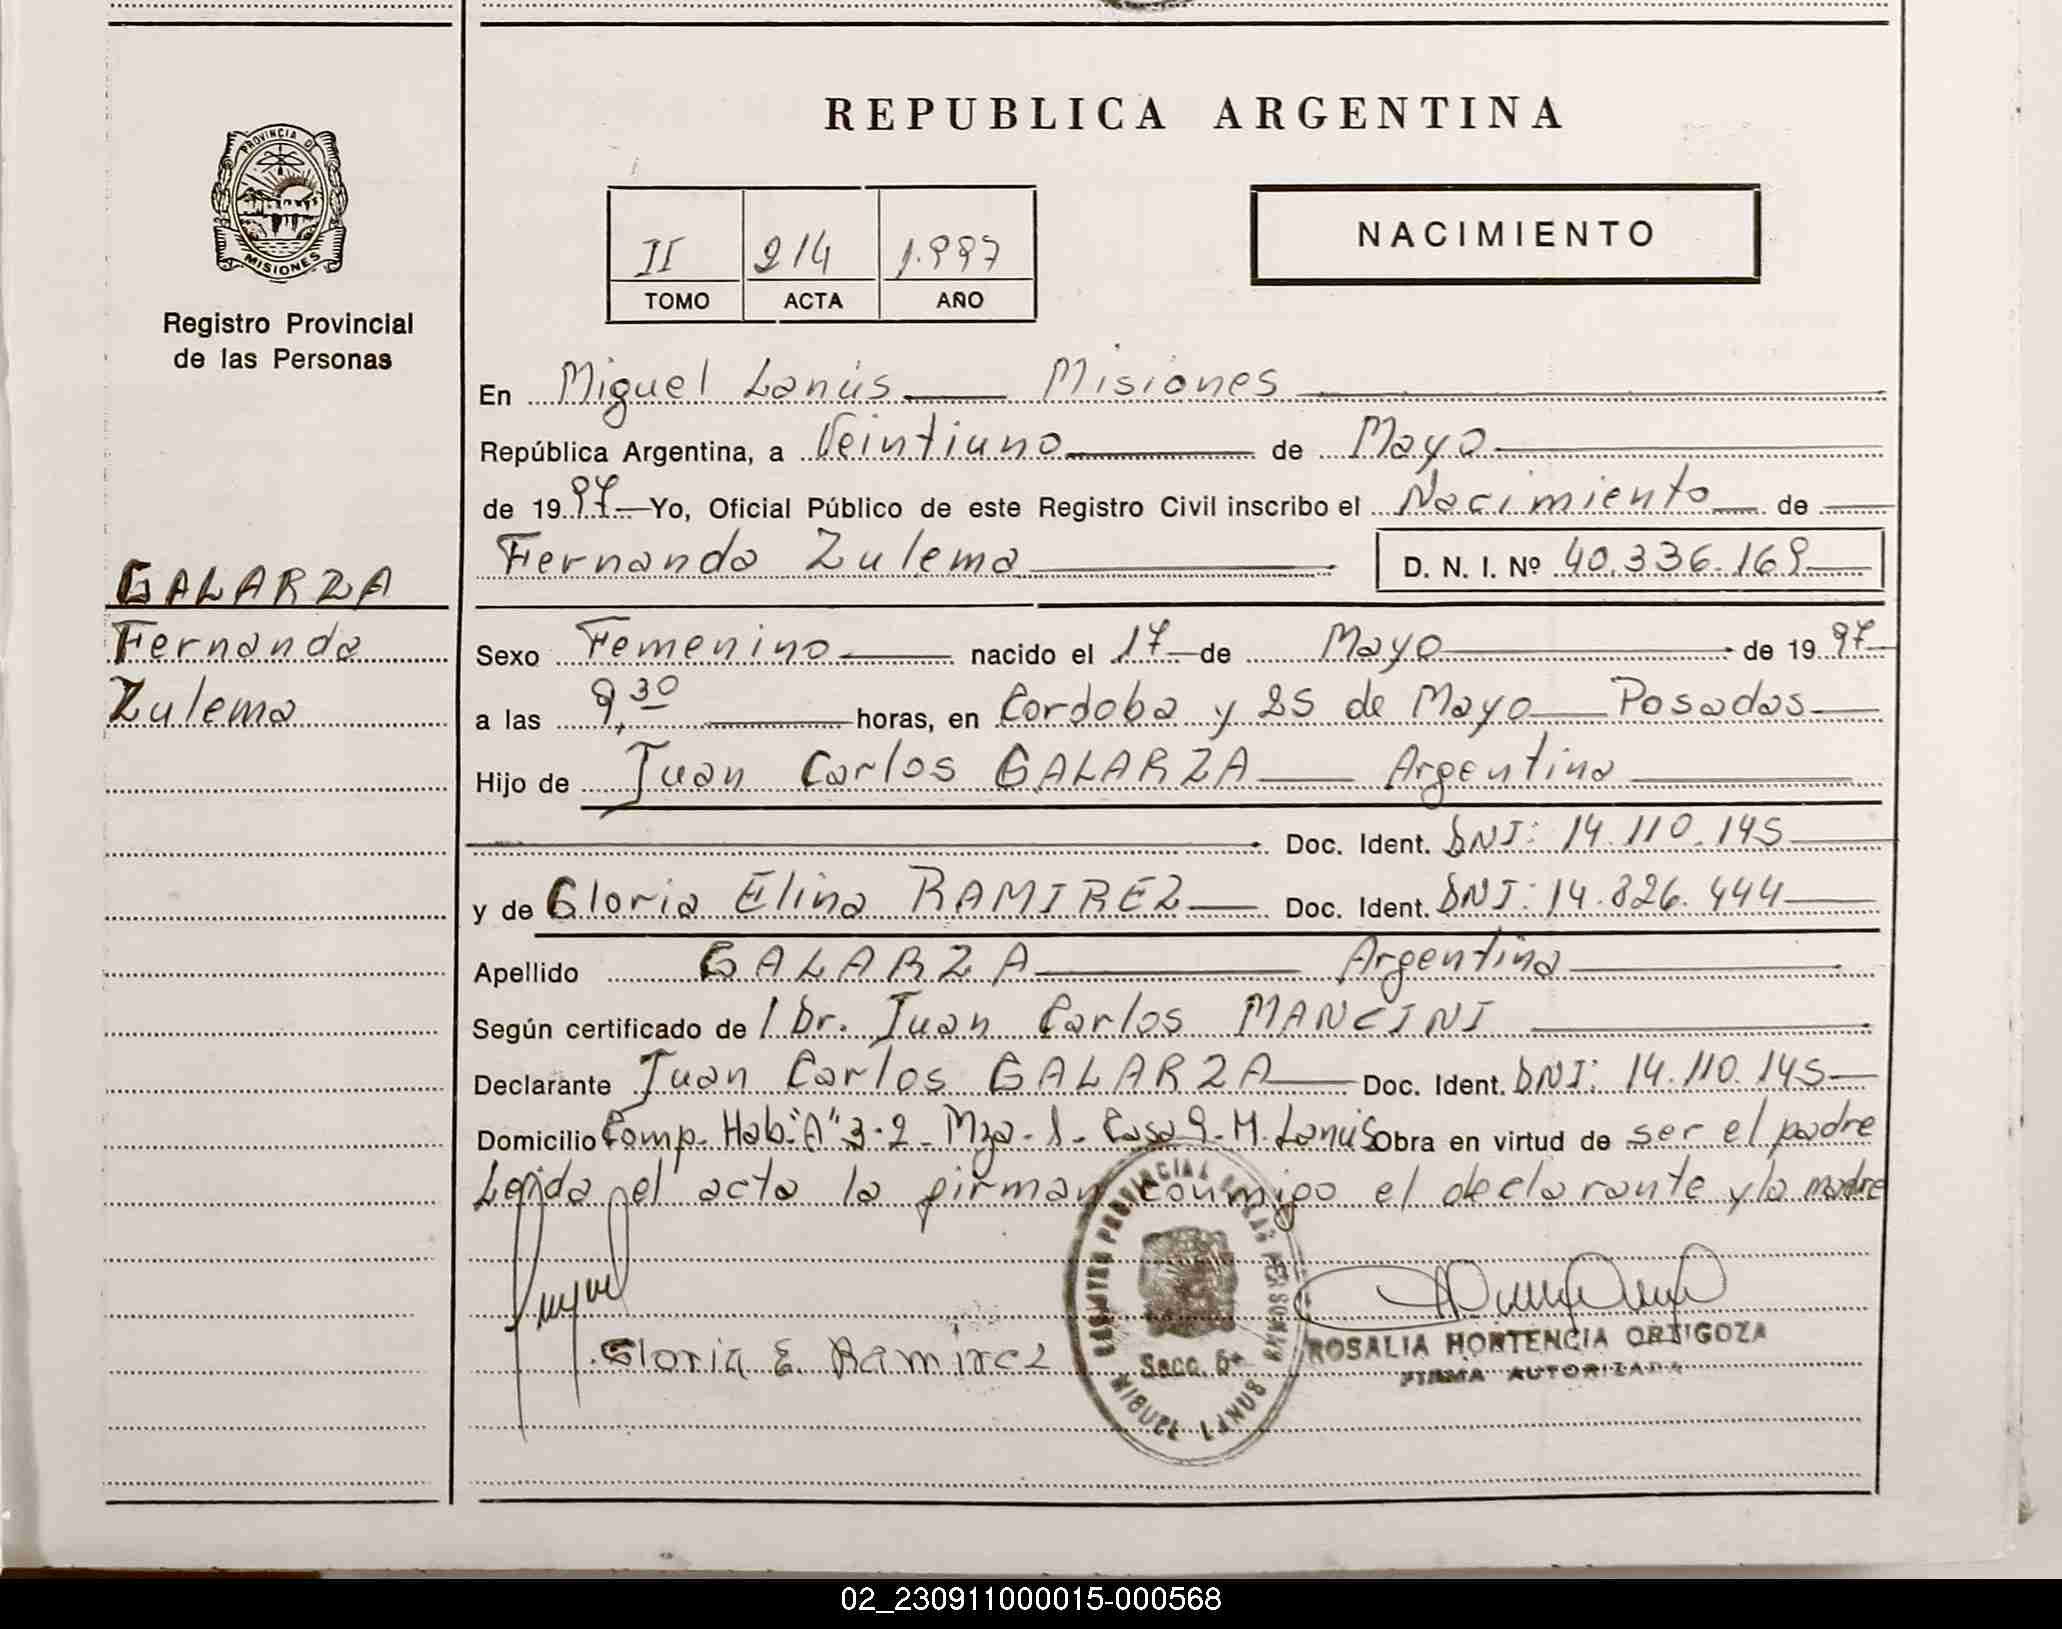 REPUBLICA ARGENTINA
PROVINCIA DE
MISIONES
Registro Provincial
de las Personas
II 214 1.997
TOMO ACTA AÑO
NACIMIENTO
En Miguel Lanús Misiones
República Argentina, a Veintiuno de Mayo
de 1997 Yo, Oficial Público de este Registro Civil inscribo el Nacimiento de
Fernanda Zulema D. N. I. Nº 40.336.169
GALARZA
Fernanda
Zulema
Sexo Femenino nacido el 17 de Mayo de 1997
a las 9,30 horas, en Cordoba y 25 de Mayo Posadas
Hijo de Juan Carlos GALARZA Argentina
Doc. Ident. DNI: 14.110.145
y de Gloria Elina RAMIREZ Doc. Ident. DNI: 14.826.444
Apellido GALARZA Argentina
Según certificado de l Dr. Juan Carlos MANCINI
Declarante Juan Carlos GALARZA Doc. Ident. DNI: 14.110.145
Domicilio Comp. Hab. "A" 3-2- Mza- - Casa 9- M. Lanús Obra en virtud de ser el padre
Leída el acta la firman conmigo el declarante y la madre
Gloria E. Ramirez
REGISTRO PROVINCIAL DE LAS PERSONAS
Secc. 6ª
ROSALIA HORTENCIA ORTIGOZA
FIRMA AUTORIZADA
02_230911000015-000568